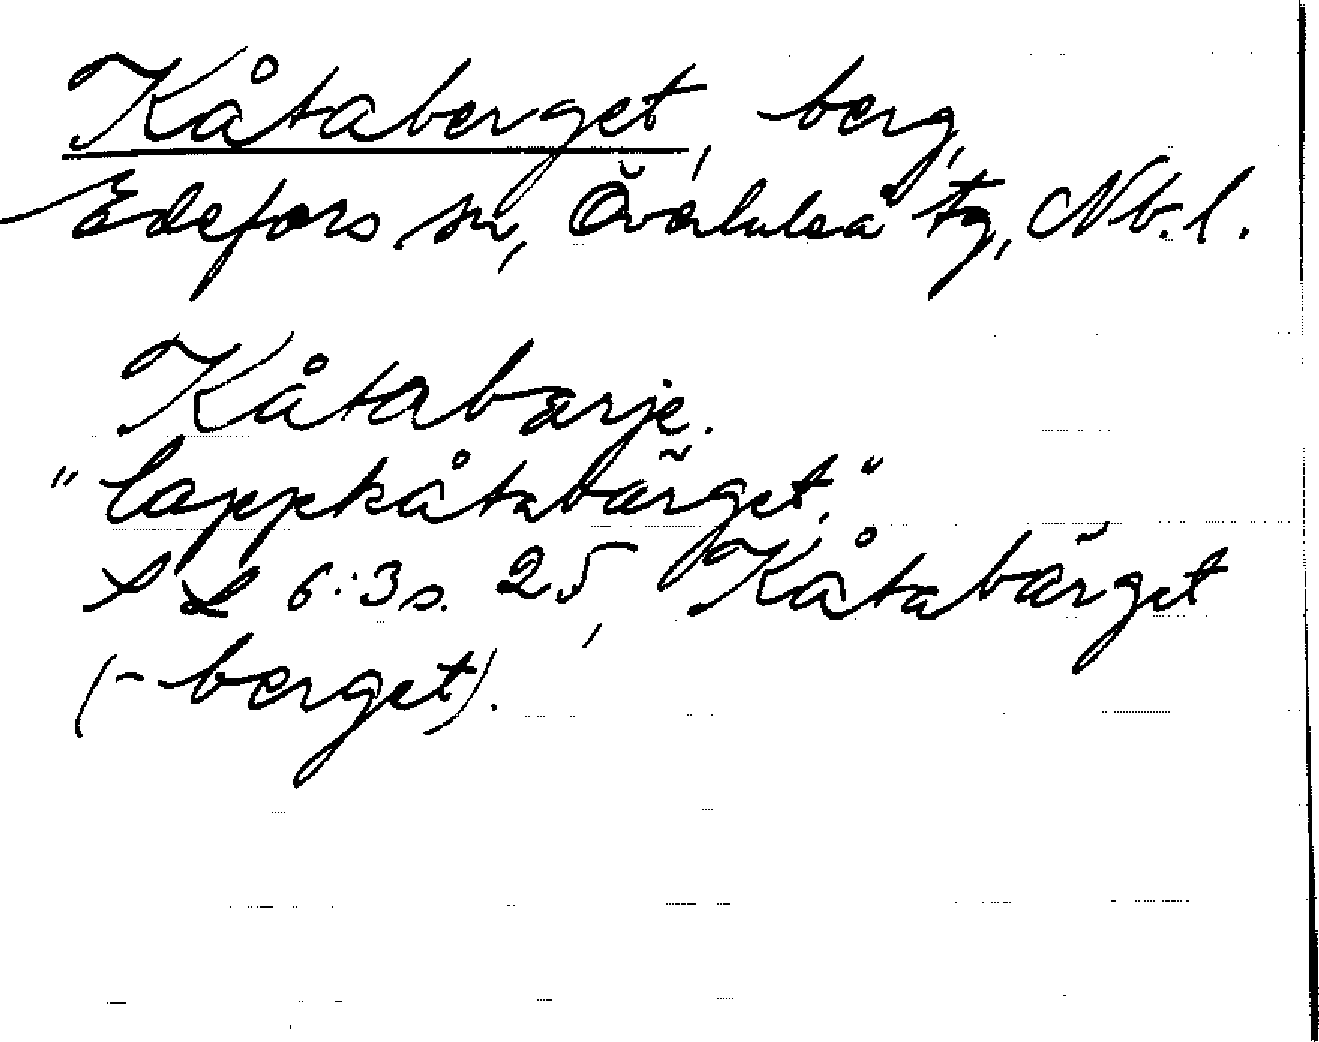 Kåtaberget, berg,
Edefors sn, Överluleå tg, Nb. l.
Kåtabærje.
"lappkåtabärget."
S L 6:3 s. 25, Kåtabärget
(-berget).